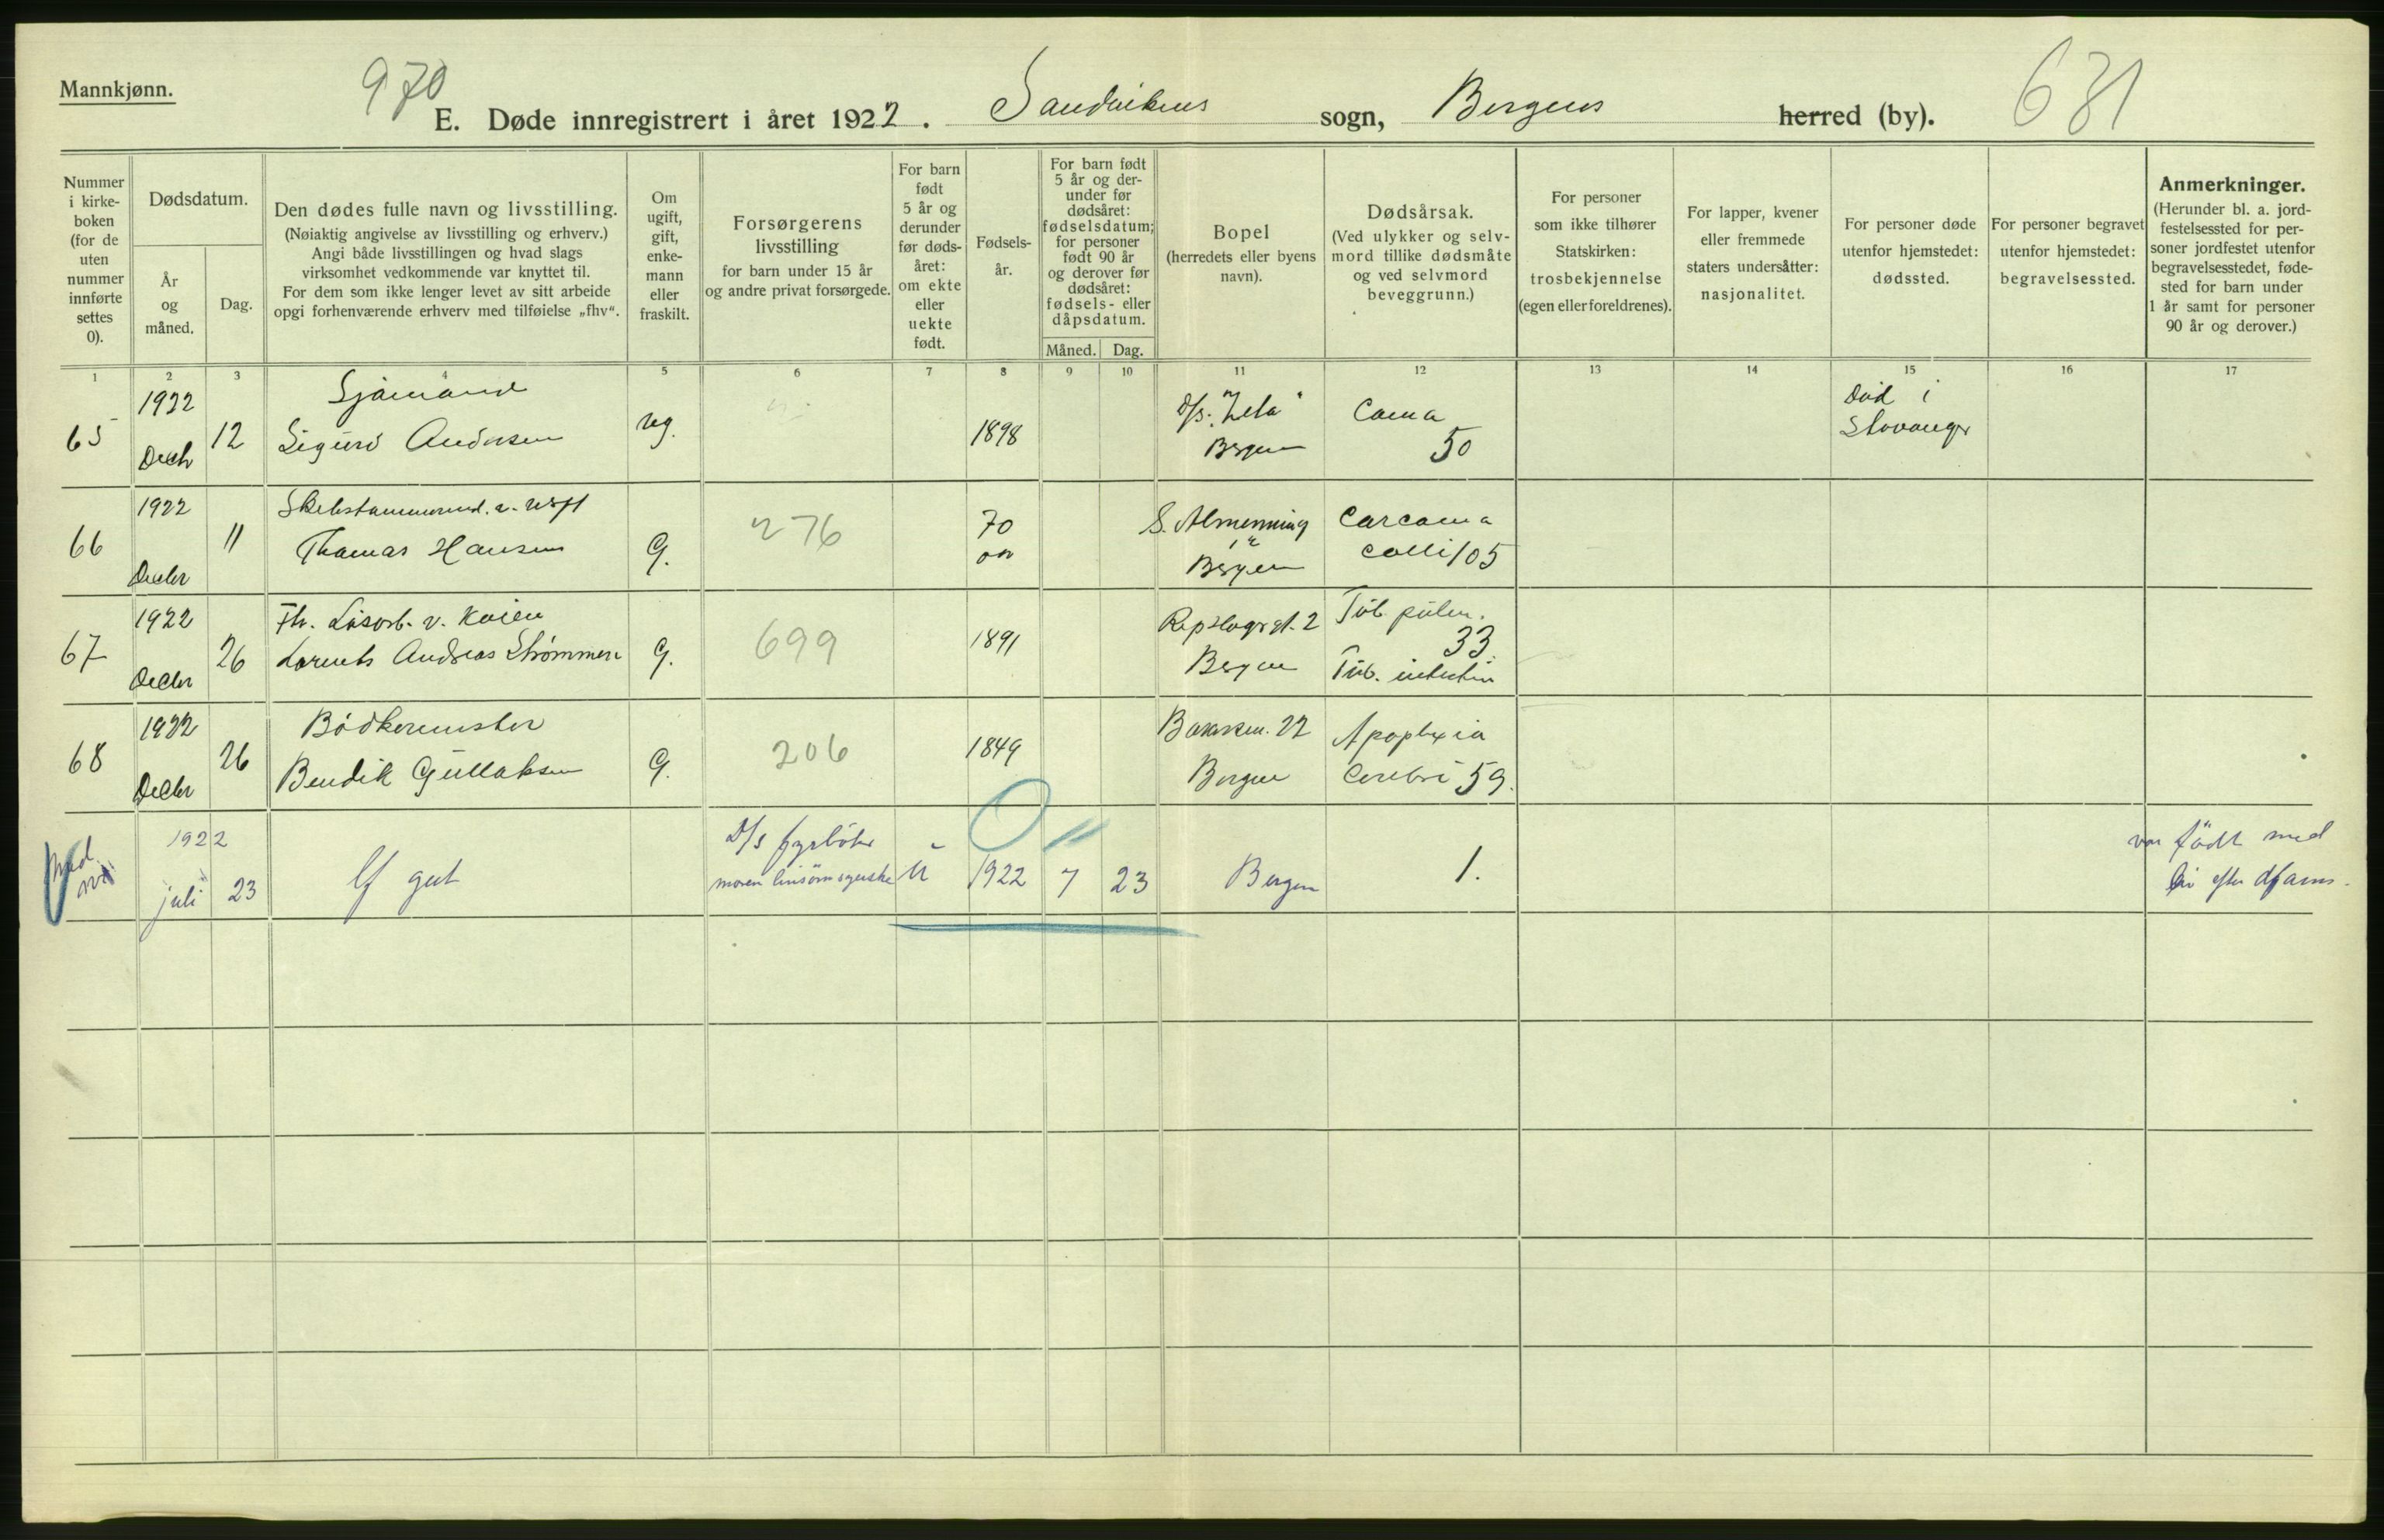 Mannkjønn.
970
E. Døde innregistrert i året 1922. Sandvikens sogn, Bergens herred (by).
631
Nummer i kirke-boken (for de uten nummer innførte settes 0).
Dødsdatum.
År og måned.
Dag.
Den dødes fulle navn og livsstilling.
(Nøiaktig angivelse av livsstilling og erhverv.)
Angi både livsstillingen og hvad slags
virksomhet vedkommende var knyttet til.
For dem som ikke lenger levet av sitt arbeide
opgi forhenværende erhverv med tilføielse „fhv“.
Om ugift, gift, enke-mann eller fraskilt.
Forsørgerens
livsstilling
for barn under 15 år
og andre privat forsørgede.
For barn født 5 år og derunder før døds-året: om ekte eller uekte født.
Fødsels-år.
For barn født 5 år og der-under før dødsåret: fødselsdatum; for personer født 90 år og derover før dødsåret: fødsels- eller dåpsdatum.
Måned.
Dag.
Bopel
(herredets eller byens
navn).
Dødsårsak.
(Ved ulykker og selv-
mord tillike dødsmåte
og ved selvmord
beveggrunn.)
For personer
som ikke tilhører
Statskirken:
trosbekjennelse
(egen eller foreldrenes).
For lapper, kvener
eller fremmede
staters undersåtter:
nasjonalitet.
For personer døde
utenfor hjemstedet:
dødssted.
For personer begravet
utenfor hjemstedet:
begravelsessted.
Anmerkninger.
(Herunder bl. a. jord-
festelsessted for per-
soner jordfestet utenfor
begravelsesstedet, føde-
sted for barn under
1 år samt for personer
90 år og derover.)
1 2 3 4 5 6 7 8 9 10 11 12 13 14 15 16 17
65 1922 Decbr 12 Sjømand
Sigurd Andersen ug. 1898 D/s. "Zeta"
Bergen Coma
50 Død i
Stavanger
66 1922 Decbr 11
Thomas Hansen G. 276 70
S. Almenning 12
Bergen
coli 105
67 1922 Decbr 26 Fh. Løsarb. v. Kaien
Andreas Strømmen G. 699 1891 Repslagergt. 2
Bergen Tub. pulm.
33.
Tub. intestin
68 1922 Decbr 26 Bødkermester
Bendik Gullaksen G. 206 1849 22
Bergen Apoplexia
Cerebri 59.
1922 juli 23 gut D/s fyrbøter
moren linsømsyerske U 1922 7 23 Bergen 1. var født med
liv efter